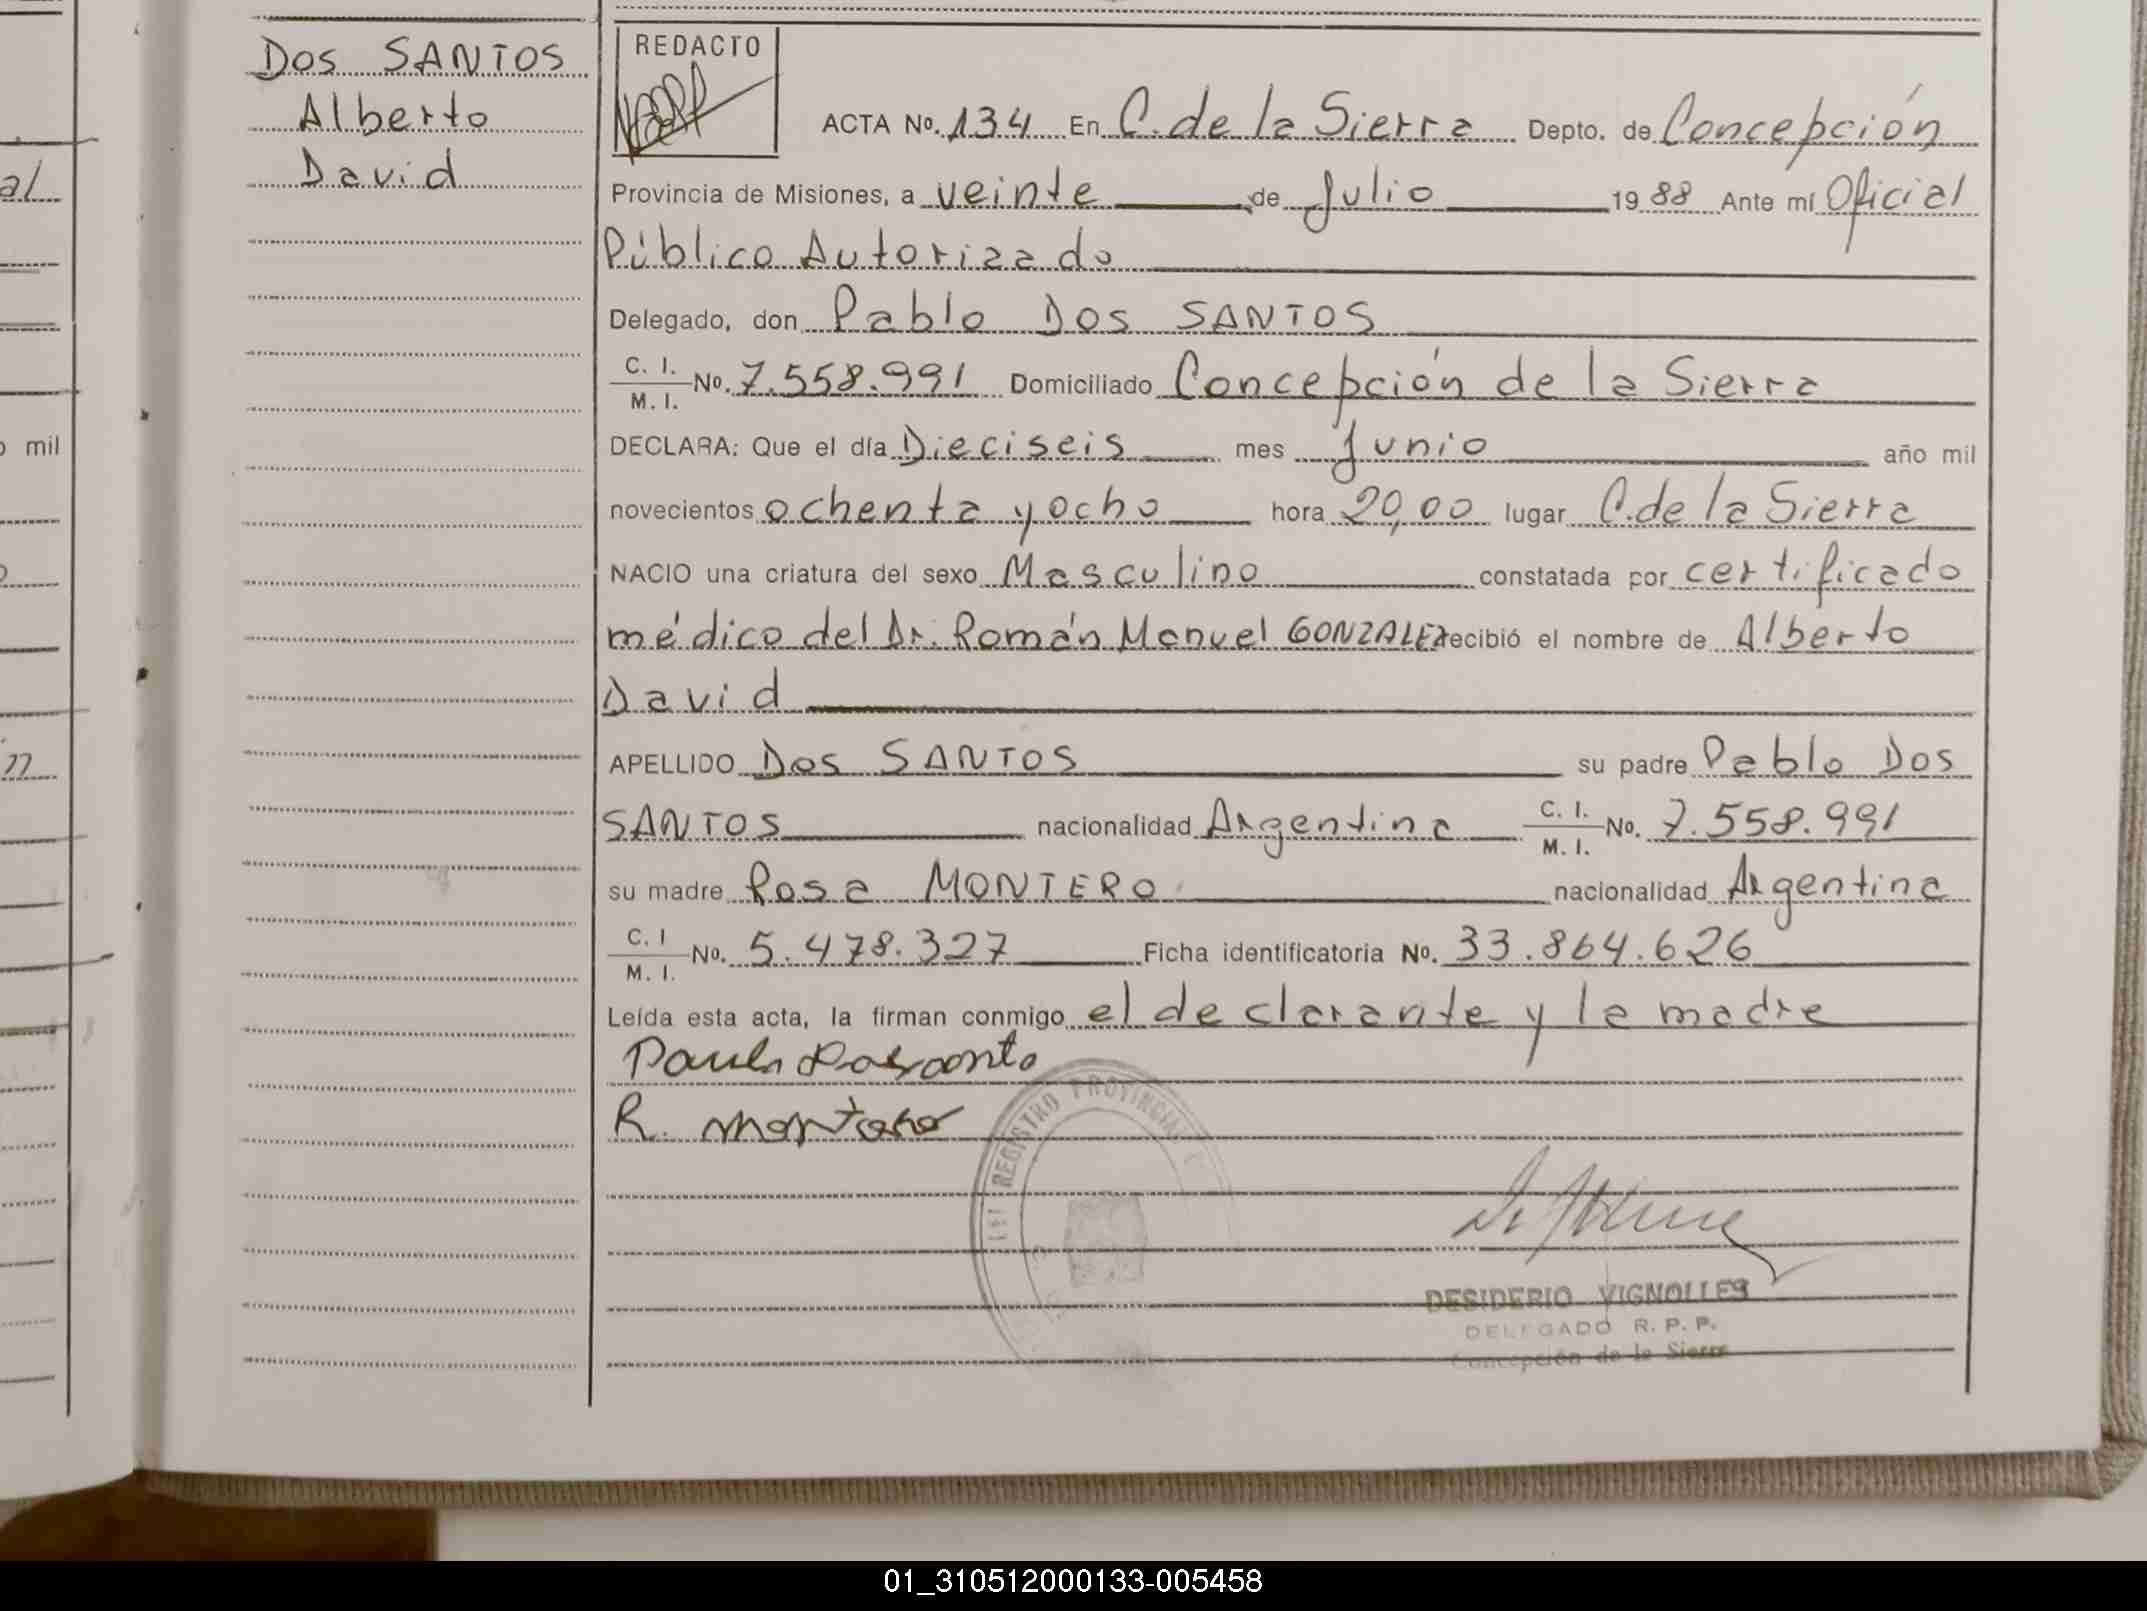 Dos SANTOS
Alberto
David
REDACTO
ACTA No. 134 En C. de la Sierra Depto. de Concepción
Provincia de Misiones, a veinte de Julio 1988 Ante mí Oficial
Público Autorizado
Delegado, don Pablo Dos SANTOS
C. I.
M. I. No. 7.558.991 Domiciliado Concepción de la Sierra
DECLARA: Que el día Dieciseis mes Junio año mil
novecientos ochenta y ocho hora 20,00 lugar C. de la Sierra
NACIO una criatura del sexo Masculino constatada por certificado
médico del Dr. Román Manuel GONZALEZ recibió el nombre de Alberto
David
APELLIDO Dos SANTOS su padre Pablo Dos
SANTOS nacionalidad Argentina C. I. M. I. No. 7.558.991
su madre Rosa MONTERO nacionalidad Argentina
C. I
M. I. No. 5.478.327 Ficha identificatoria No. 33.864.626
Leída esta acta, la firman conmigo el declarante y la madre
R. Montero
REGISTRO PROVINCIAL
DESIDERIO VIGNOLLES
DELEGADO R. P. P.
Concepción de la Sierra
al
o mil
n
01_310512000133-005458